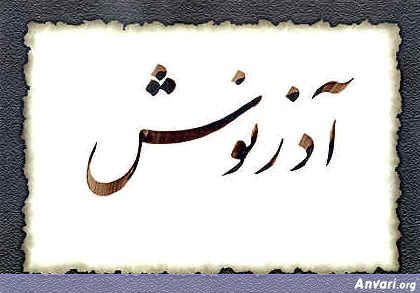 آذرنوش
Anvari.org